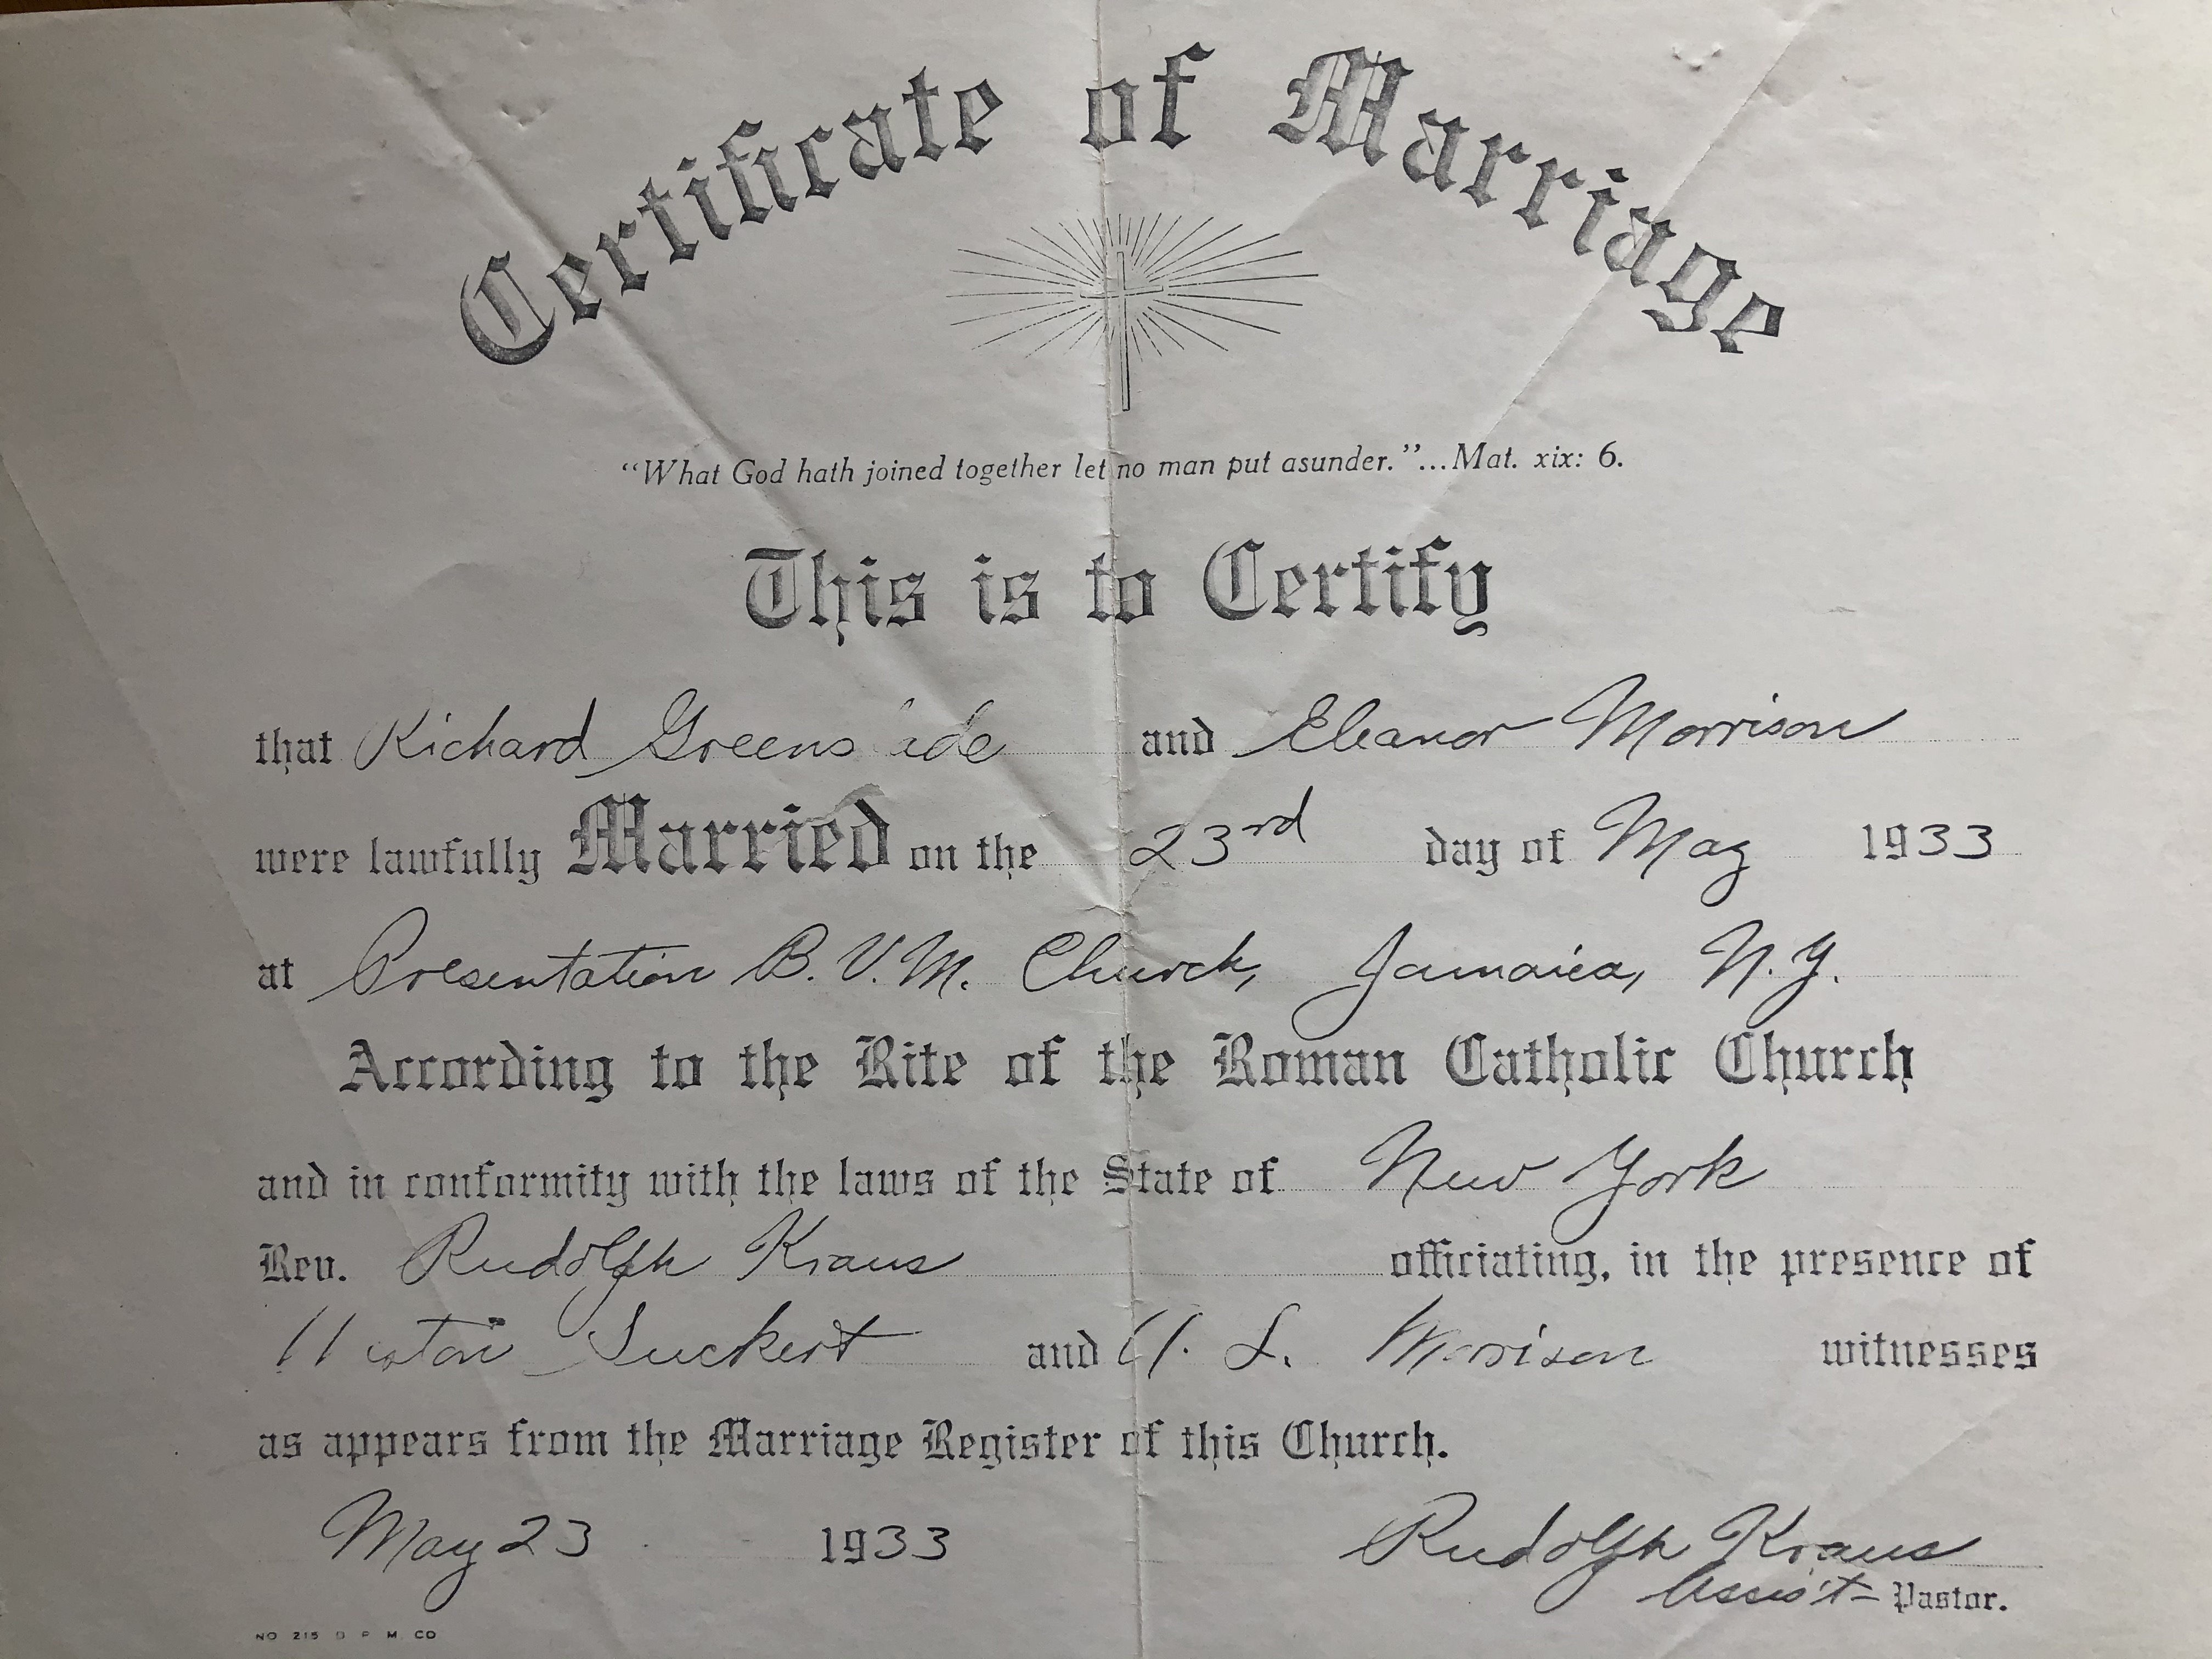 Certificate of Marriage
“What God hath joined together let no man put asunder.”...Mat. xix: 6.
This is to Certify
that Richard Greens ade and Eleanor Morrison
were lawfully Married on the 23rd day of May 1933
at Presentation B. V. M. Church, Jamaica, N. Y.
According to the Rite of the Roman Catholic Church
and in conformity with the laws of the State of New York
Rev. Rudolph Kraus officiating, in the presence of
Suckert and L. Morrison witnesses
as appears from the Marriage Register of this Church.
May 23 1933 Rudolph Kraus
Assist- Pastor.
NO 215 D P M CO